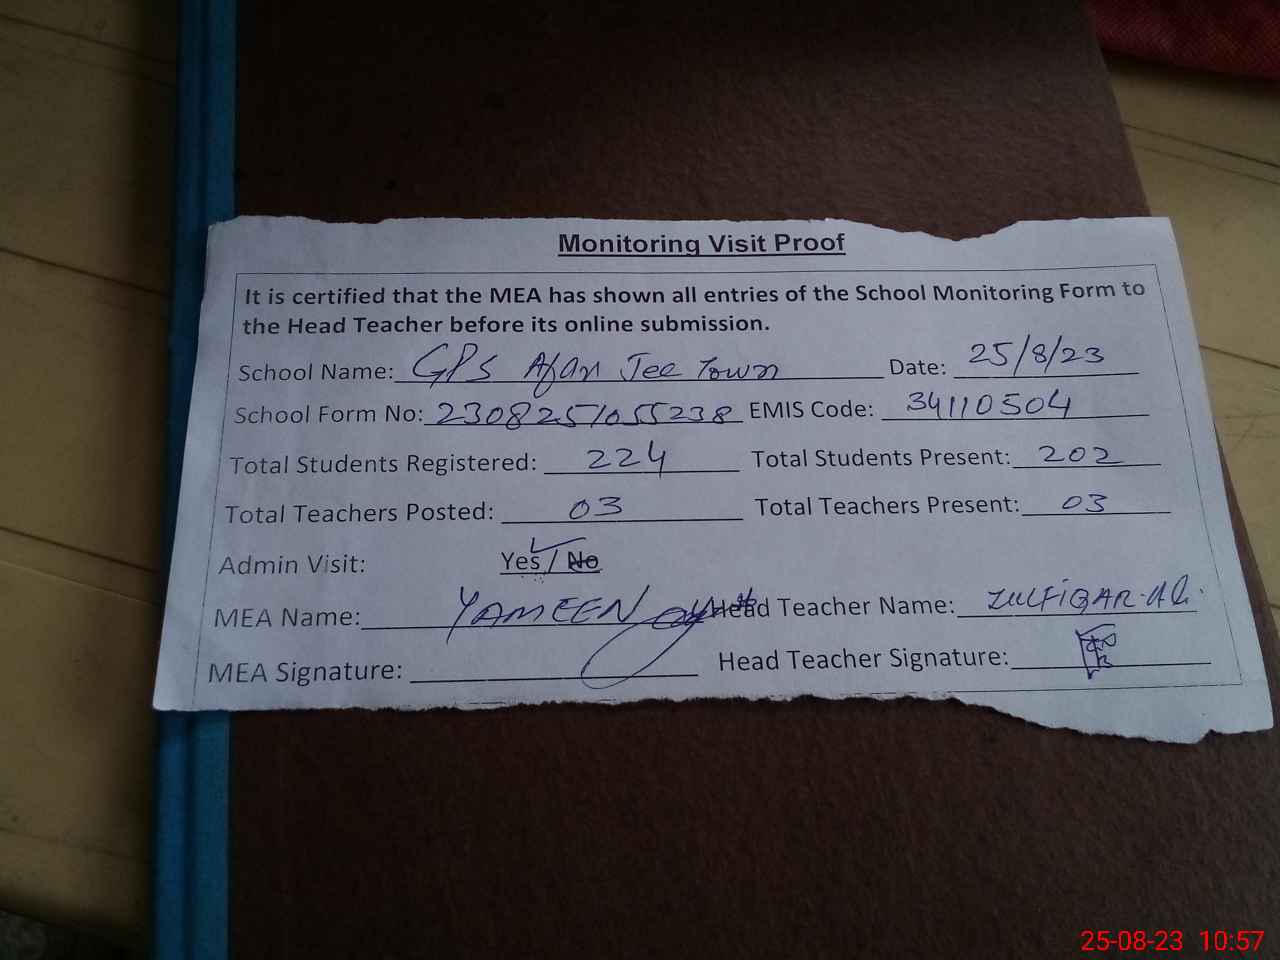 Monitoring Visit Proof
It is certified that the MEA has shown all entries of the School Monitoring Form to
the Head Teacher before its online submission.
School Name: GPS Afan Jee Town Date: 25/8/23
School Form No: 2308251055238 EMIS Code: 34110504
Total Students Registered: 224 Total Students Present: 202
Total Teachers Posted: 03 Total Teachers Present: 03
Admin Visit: Yes / No
MEA Name: YAMEEN Head Teacher Name: ZULFIQAR Ali
MEA Signature: Head Teacher Signature:
25-08-23 10:57